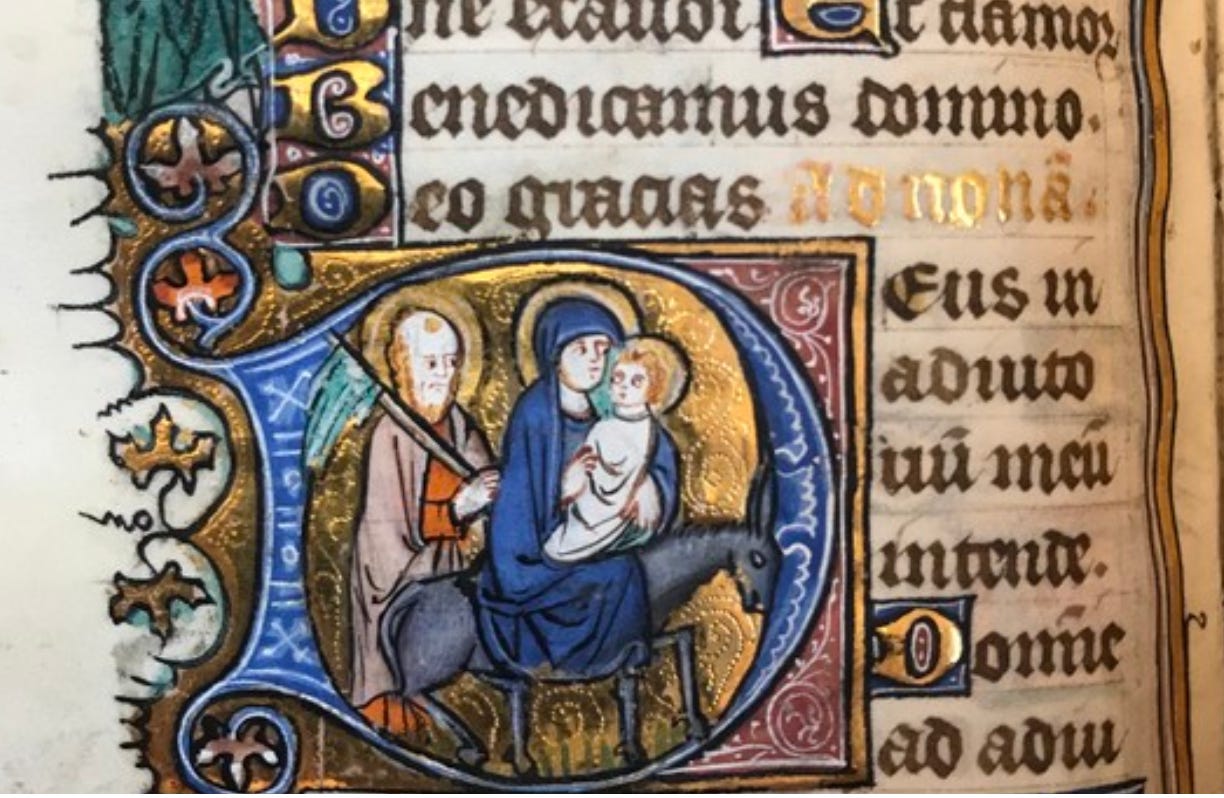 ne exaudi Et clamor
Benedicamus domino.
Deo gracias Ad nonā.
DEus in
adiuto
iuū meū
intende.
Domīe
ad adiu